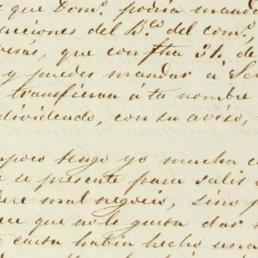 que Dom.º podría manda
acciones del B.co del com.o
veras, que con fha 31. de
y puedes mandar á Se
transfieran á tu nombre
dividendo, con su aviso,
tampoco tengo yo mucha c
se presente para salir
mal negocio, sino p
ece que no le gusta dar
carta había hecho una